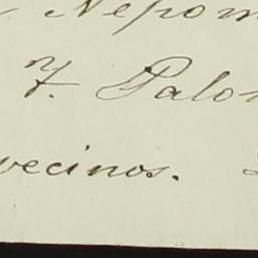 Nepom
7. Palom
vecinos.